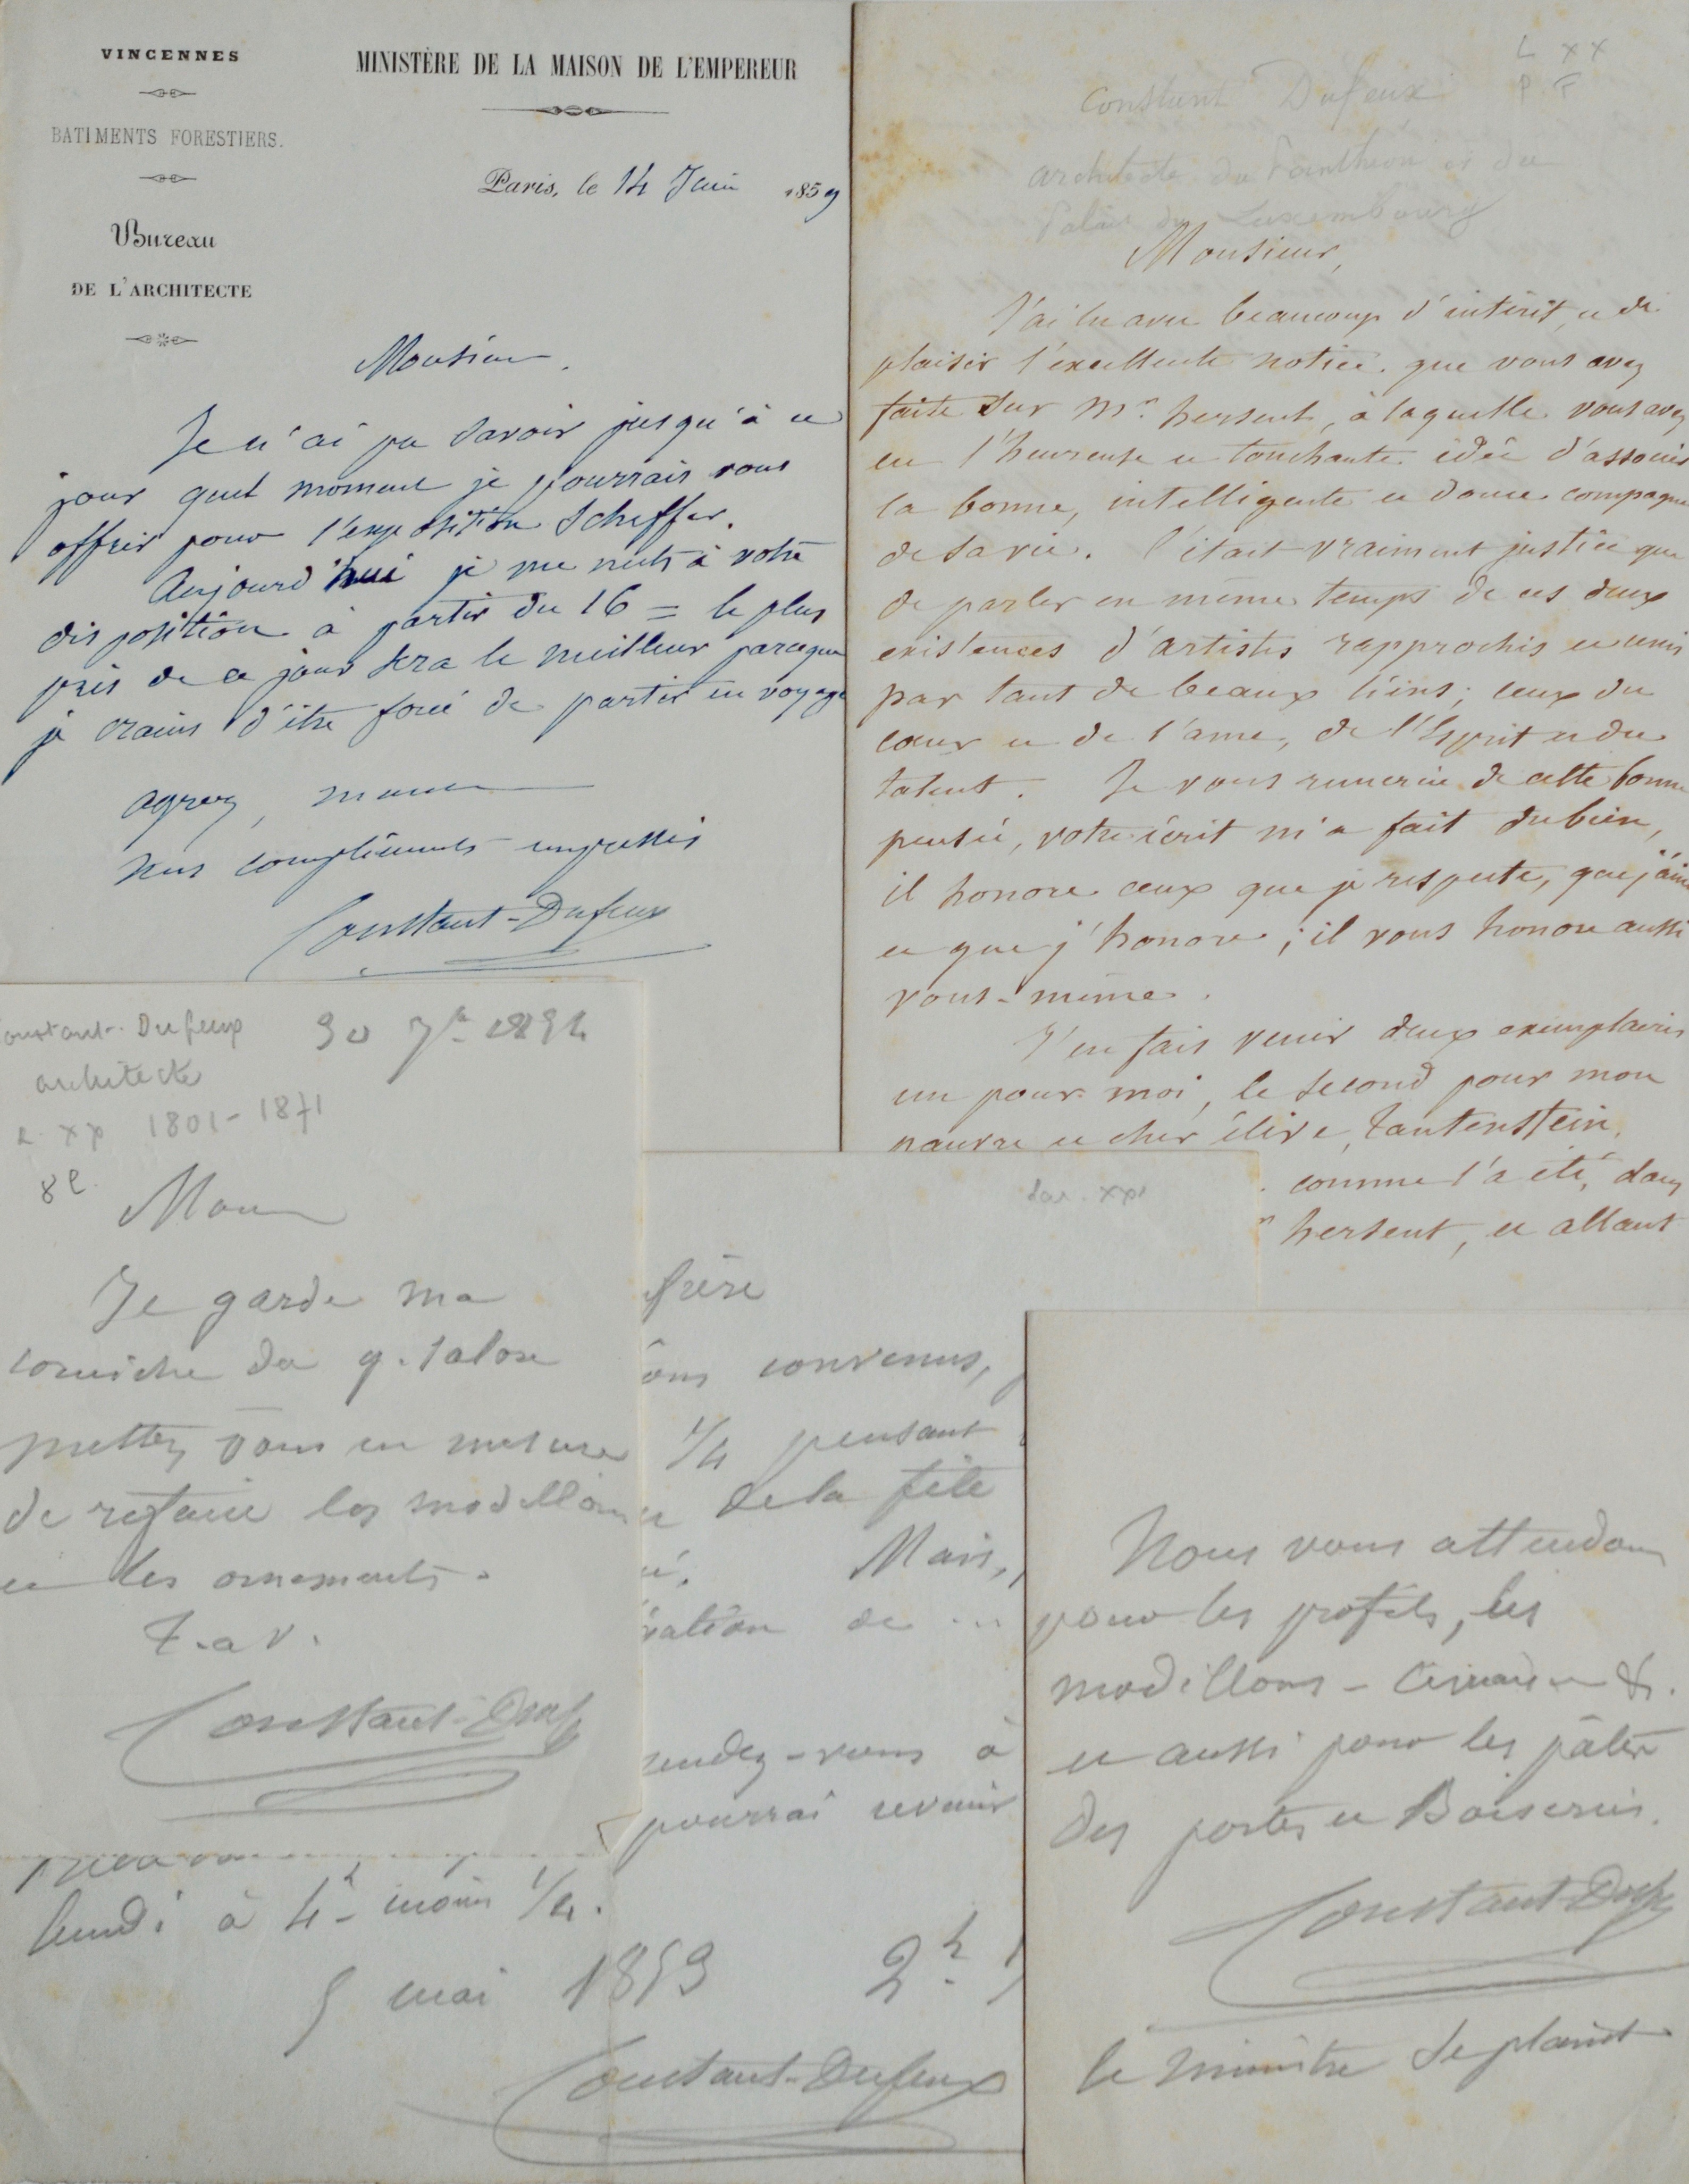 VINCENNES
BATIMENTS FORESTIERS.
Bureau
DE L'ARCHITECTE
MINISTÈRE DE LA MAISON DE L'EMPEREUR
Paris, le 14 Juin 1859
Monsieur.
Je n'ai pu savoir jusqu'à ce
jour quel moment je pourrais vous
offrir pour l'exposition Scheffer.
Aujourd'hui je me mets à votre
disposition à partir du 16 = le plus
près de ce jour sera le meilleur parceque
je crains d'être forcé de partir en voyage
agréez,
mes compliments empressés
Constant-Dufeux
L XX
P F
Constant Dufeux
architecte du Panthéon et du
Palais du Luxembourg
Monsieur,
J'ai lu avec beaucoup d'intérêt, et de
plaisir l'excellente notice que vous avez
faite sur Mr. hersent, à laquelle vous avez
eu l'heureuse et touchante idée d'associer
la bonne, intelligente et douce compagne
de sa vie. C'était vraiment justice que
de parler en même temps de ces deux
existences d'artistes rapprochés et unis
par tant de beaux liens; ceux du
cœur et de l'ame, de l'Esprit et du
talent. Je vous remercie de cette bonne
pensée, votre écrit m'a fait du bien,
il honore ceux que je respecte, que j'aime
et que j'honore; il vous honore aussi
vous-même.
J'en fais venir deux exemplaires
un pour moi, le second pour mon
pauvre et cher élève,
comme l'a été, dans
hersent, et allant
onstant-Dufeux
architecte
L. XX 1801-1871
8e
30 7bre
Je garde ma
corniche du g. salon
mettez vous en mesure
de refaire les modillons
et les ornements.
T. à V.
Constant-Duf
frère
ons convenus,
1/4 pensant
de la fête
Mais,
ration de ...
rendez-vous à
pourrai revenir
lundi à 4h moins 1/4.
5 mai 1859 2h
Constant-Dufeux
Nous vous attendons
pour les profils, les
modillons - &.
et aussi pour les
des portes et Boiseries.
Constant-Duf
le ministre se plaint